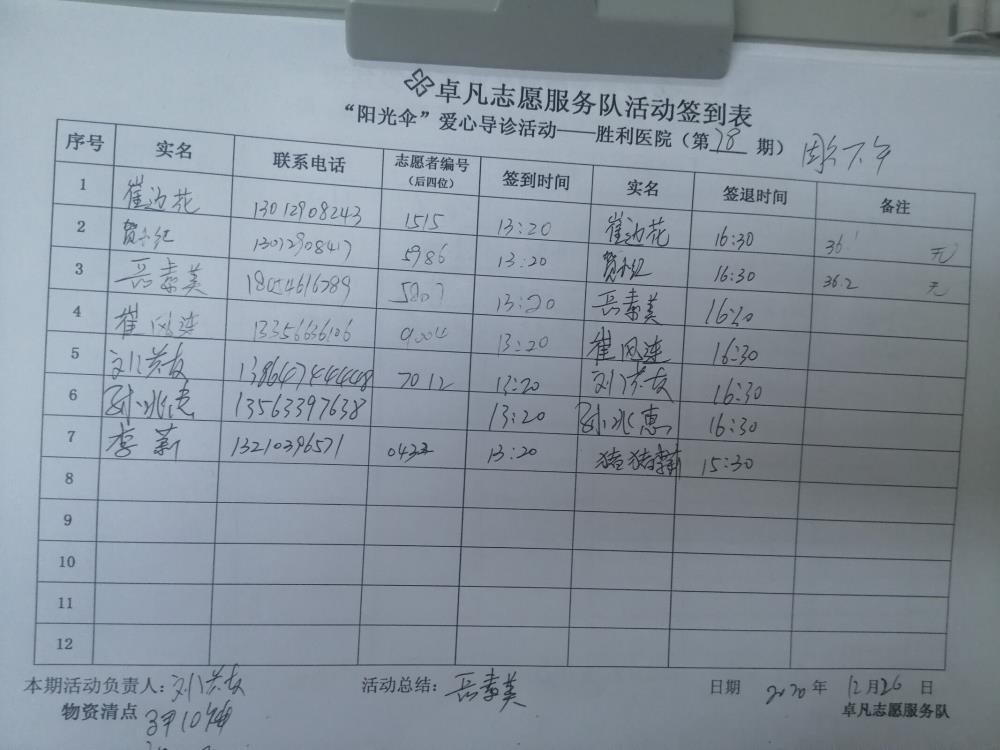 卓凡志愿服务队活动签到表
“阳光伞”爱心导诊活动——胜利医院（第78期） 周六下午
序号 实名 联系电话 志愿者编号（后四位） 签到时间 实名 签退时间 备注
1 崔边花 13012908243 1515 13:20 崔边花 16:30 36. 元
2 13072908417 5986 13:20 16:30 36.2 元
3 岳素美 18054616789 5807 13:20 岳素美 16:30
4 崔风连 13356636106 9004 13:20 崔风连 16:30
5 刘洪友 13864744448 7012 13:20 刘洪友 16:30
6 孙兆惠 13563397638 13:20 孙兆惠 16:30
7 李新 13210396571 0433 13:20 15:30
8
9
10
11
12
本期活动负责人：刘洪友 活动总结：岳素美 日期 2020年12月26日
物资清点 卓凡志愿服务队